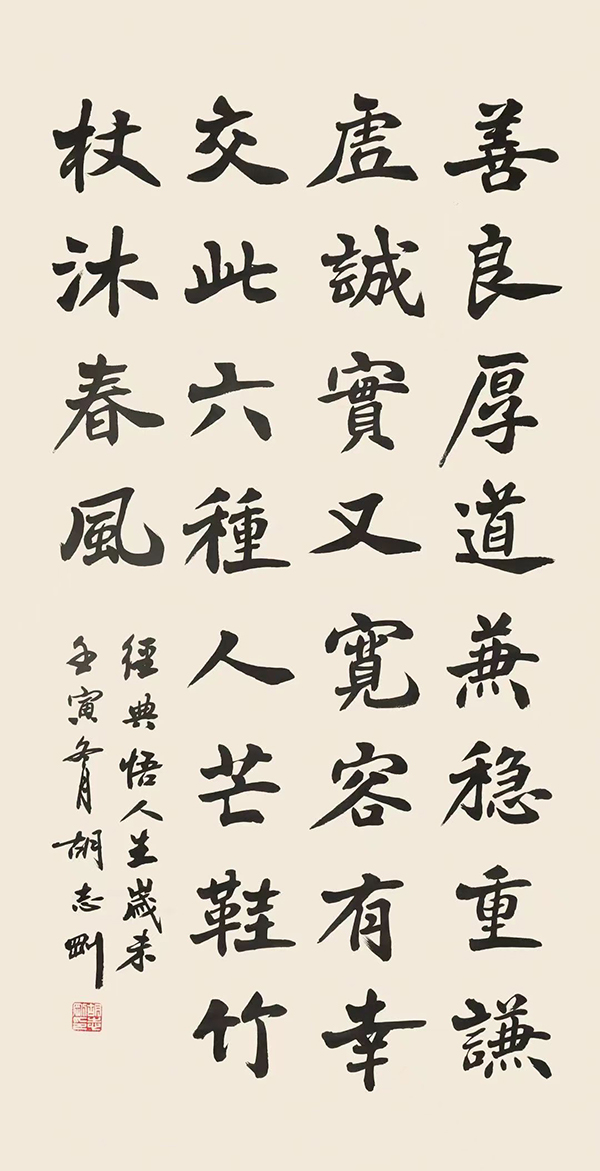 善良厚道兼稳重謙
虚誠實又寬容有幸
交此六種人芒鞋竹
杖沐春風
經典悟人生歲末
壬寅冬月胡志剛